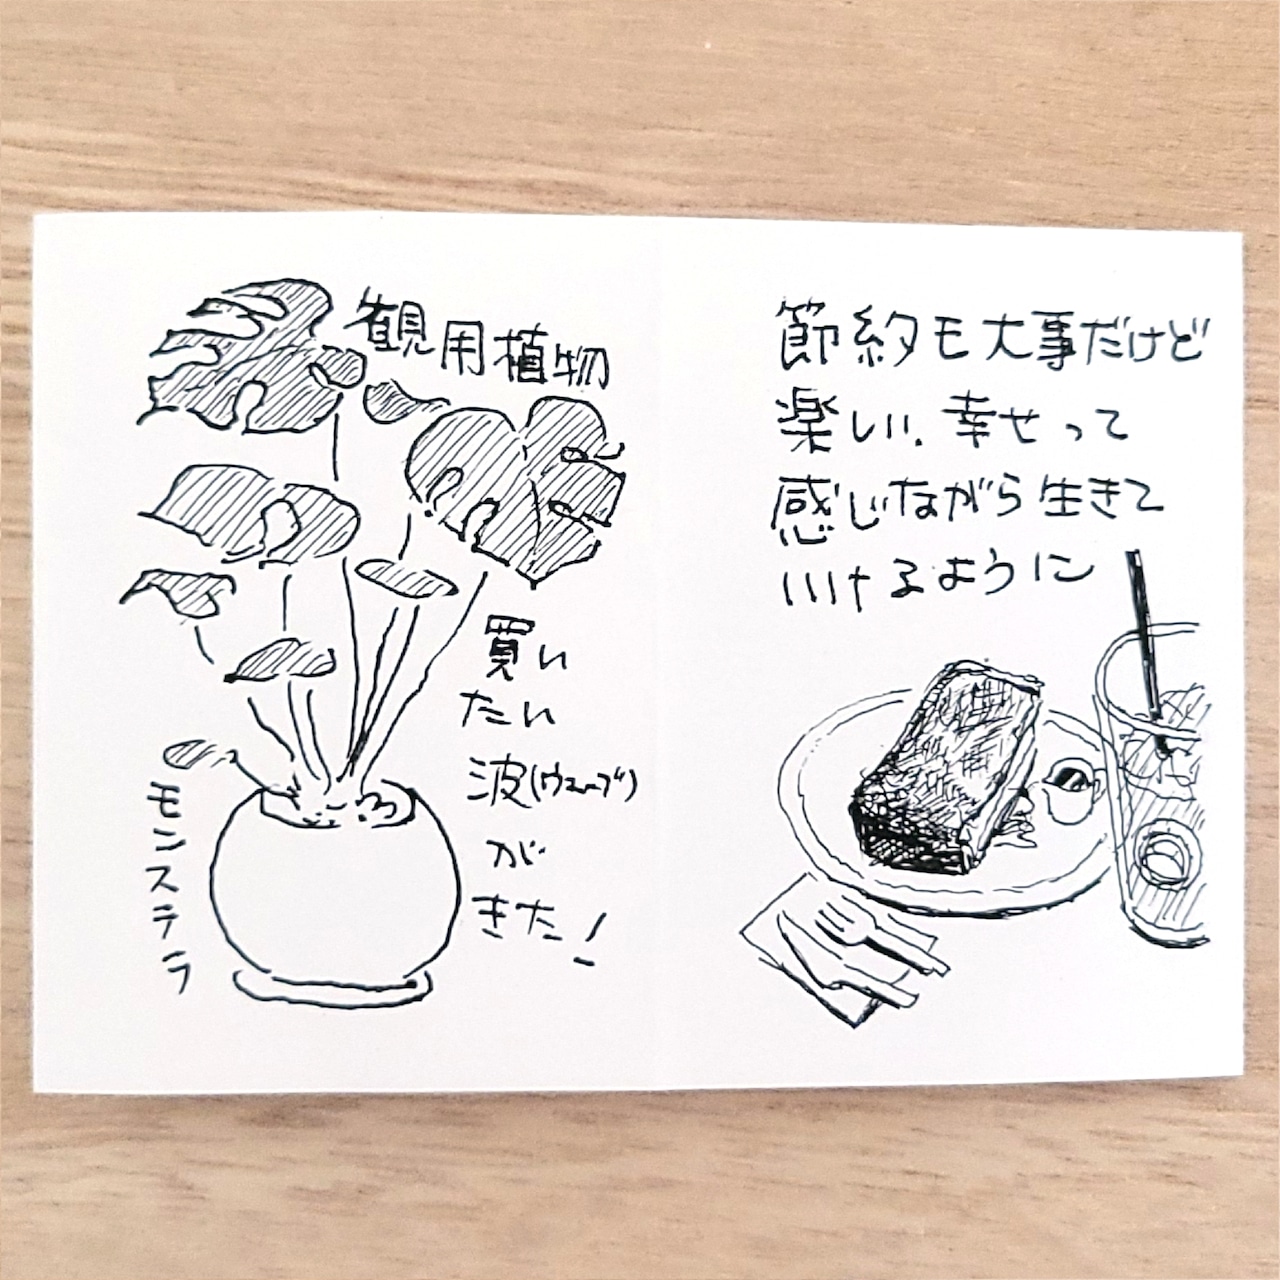 観用植物
買い
たい
波(ウェーブ)
が
きた!
モンステラ
節約も大事だけど
楽しい、幸せって
感じながら生きて
いけるように